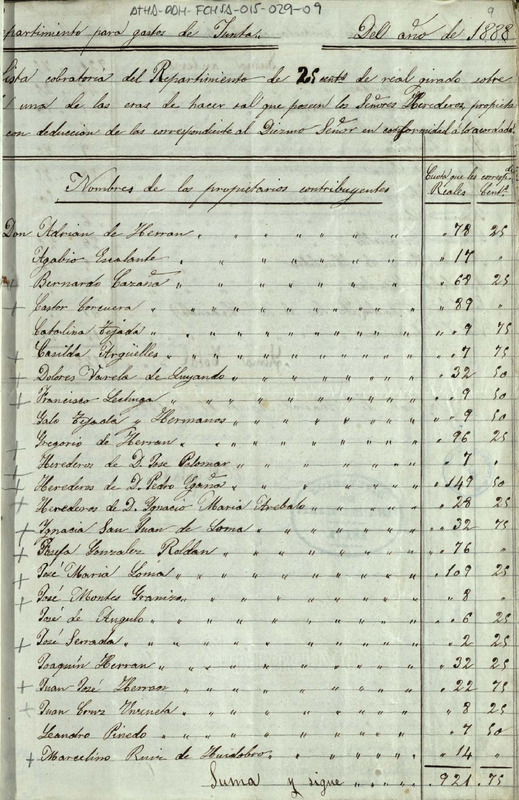 ATHA-DDH-FCHSA-015-029-09
9
epartimiento para gastos de Junta. Del año de 1888
ista cobratoria del Repartimiento de 25 cents de real girado sobre
una de las eras de hacer sal que poseen los Señores Herederos propieta
con deduccion de las correspondiente al Diezmo Señor en conformidad á lo acordado
Nombres de los propietarios contribuyentes Cuota que les correspde
Reales Cents
Don Adrian de Herran 78 25
Agabio Escalante 17 "
Bernardo Cazaña 69 25
Castor Corcuera 89 "
Catalina Tejada 9 75
Casilda Argüelles 7 75
Dolores Varela de Luyando 32 50
Francisco Lechuga 9 50
Galo Tejada y Hermanos 9 50
Gregorio de Herran 96 25
Herederos de D. José Palomar 7 "
Herederos de D. Pedro Ygaña 149 50
Herederos de D. Ignacio Maria Arebalo 28 25
Ignacia San Juan de Loma 32 75
Josefa Gonzalez Roldan 76 "
José Maria Loma 109 25
José Montes Granizo 8 "
José de Angulo 6 25
José Serrada 2 25
Joaquín Herran 32 25
Juan José Herran 22 75
Juan Cruz Unzueta 8 25
Leandro Pinedo 7 50
Marcelino Ruiz de Huidobro 14 "
Suma y sigue 921 75